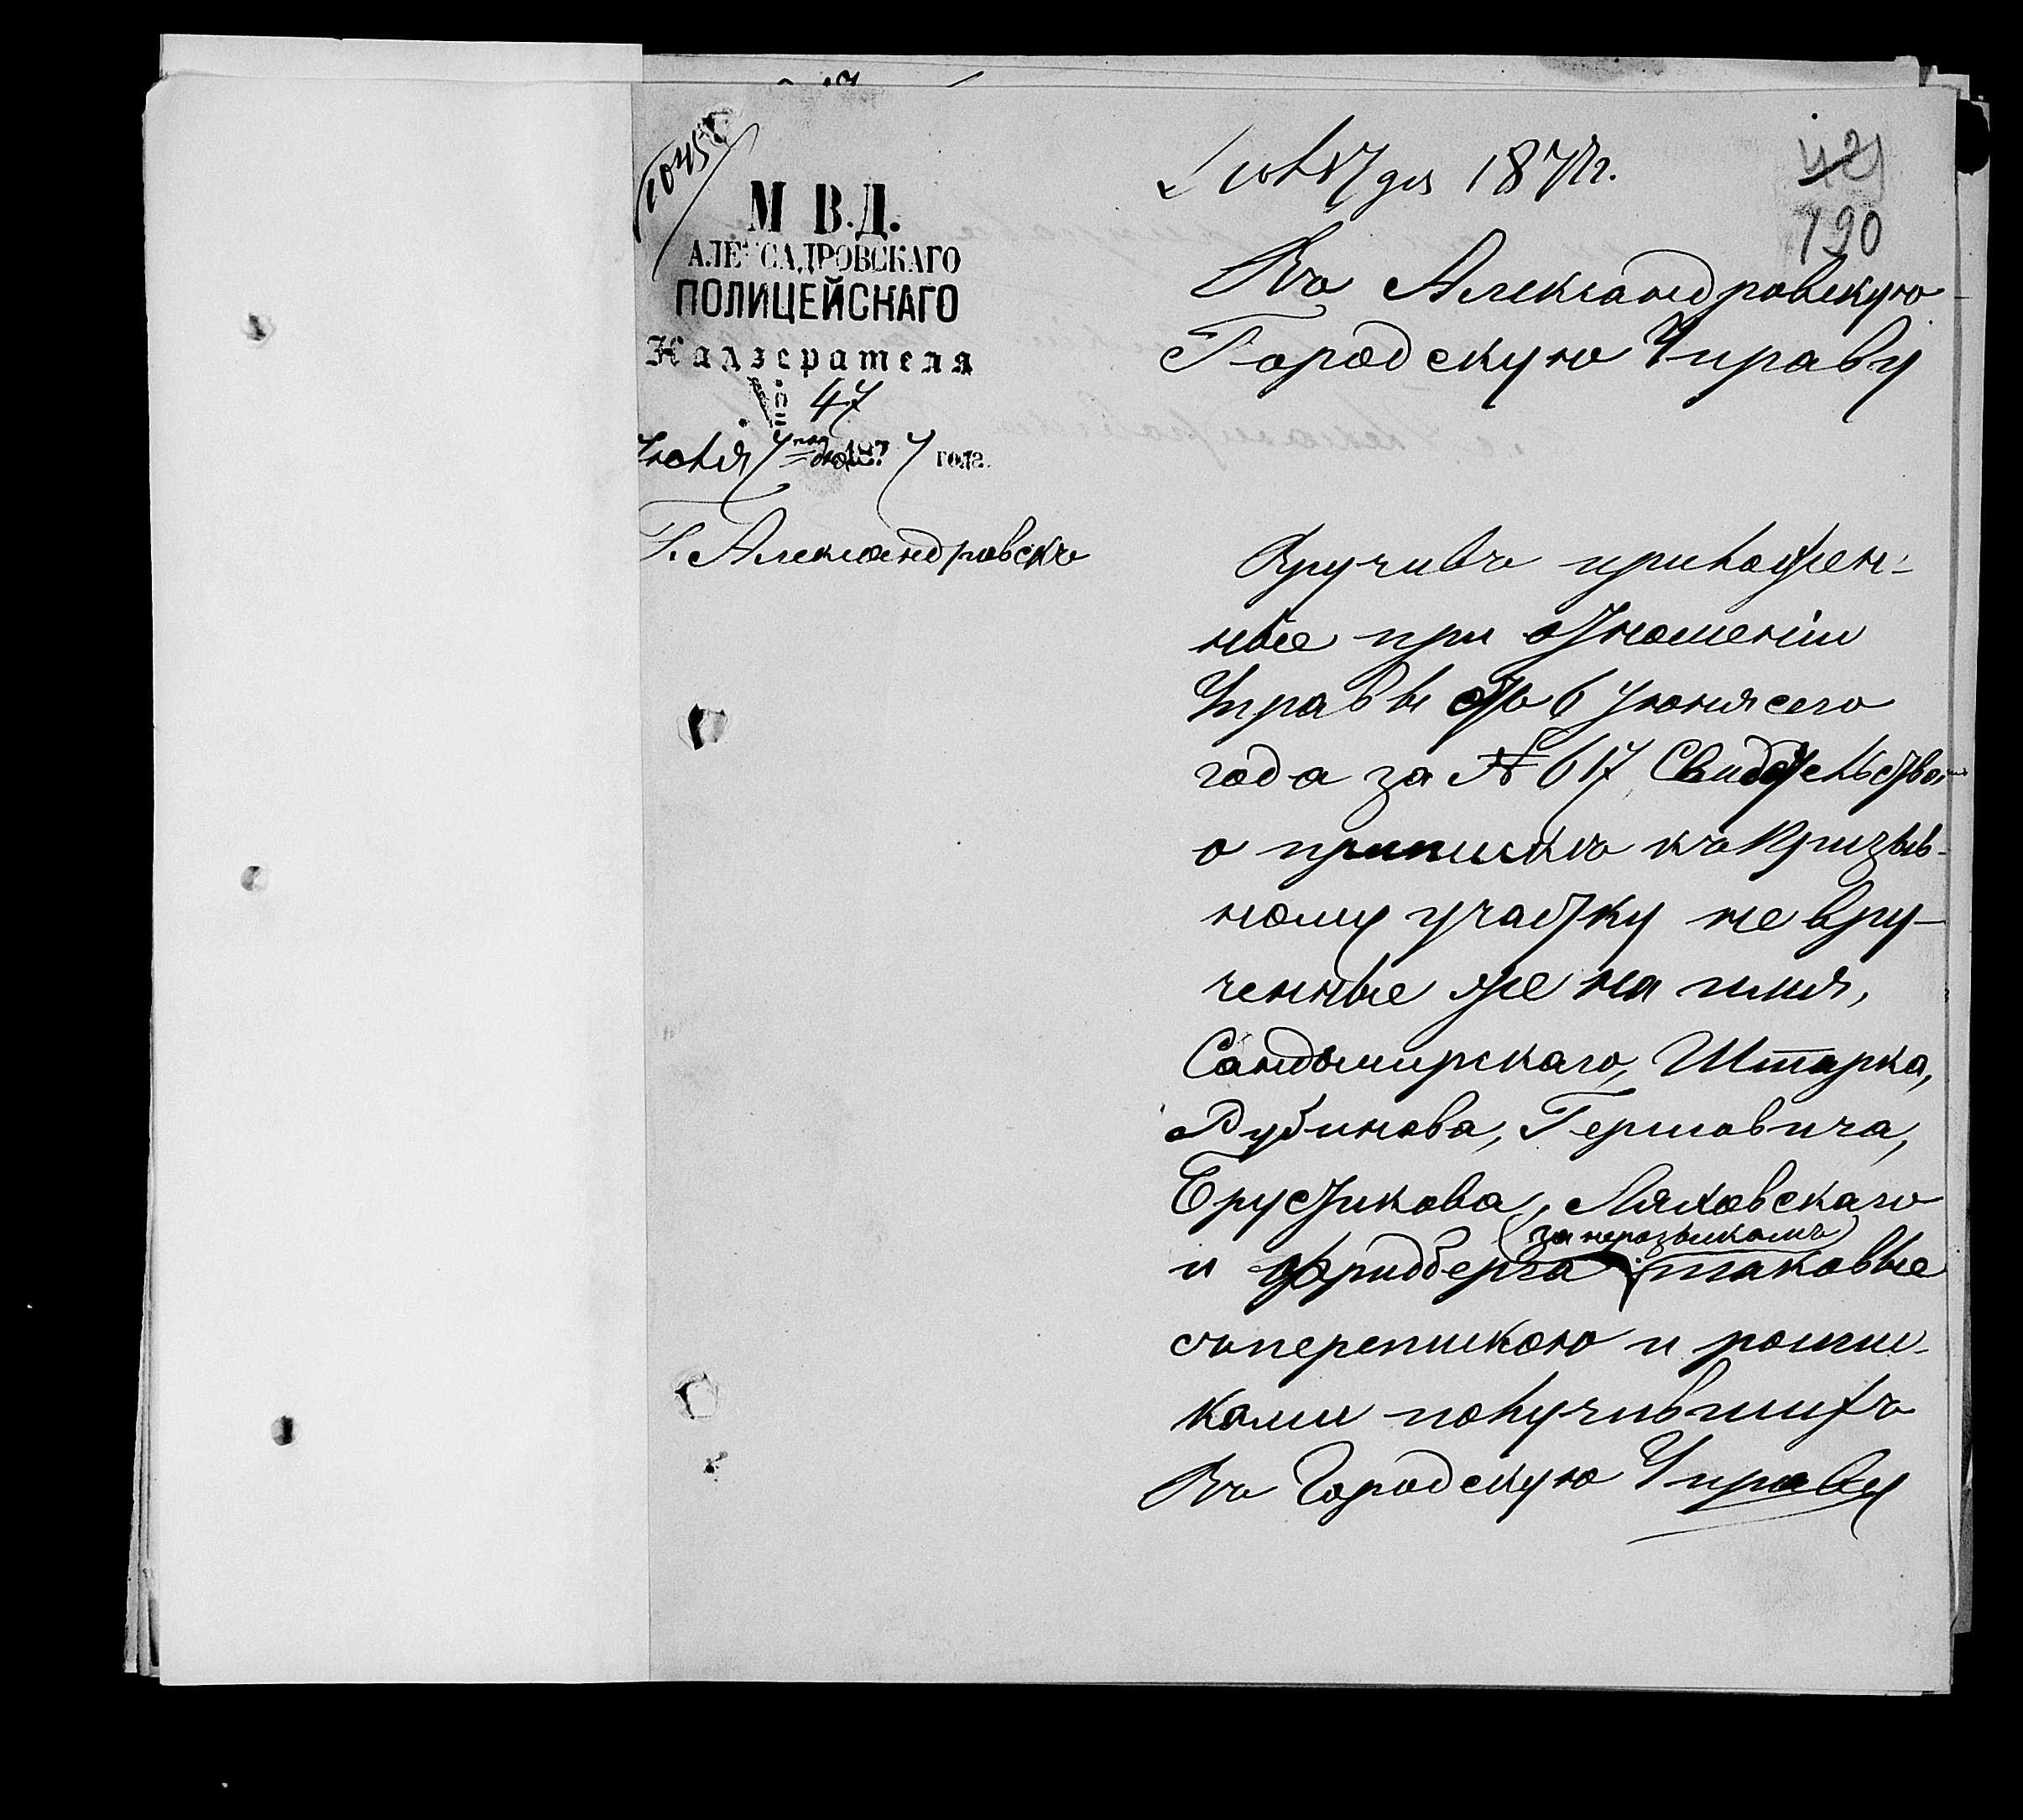 1045
М В.Д.
АЛЕКСАДРОВСКАГО
ПОЛИЦЕЙСКАГО
Надзерателя
№ 47
Июня 187 7 года.
Г. Александровскъ
17 1877г.
42
190
Въ Александровскую
Городскую Управу
Вручивъ приложен-
ные при отношеніи
Управы отъ 6 Июня сего
года за № 617 Свидетельства
о приписке къ Призыв-
ному участку не вру-
ченные же на имя,
Сандомирскаго, Штарка,
Рубинова, Гершовича,
Брустикова, Ляховскаго
(за нерозыскомъ)
и Фридберга таковые
съ перепискою и роспис-
ками получившихъ
Въ Городскую Управу